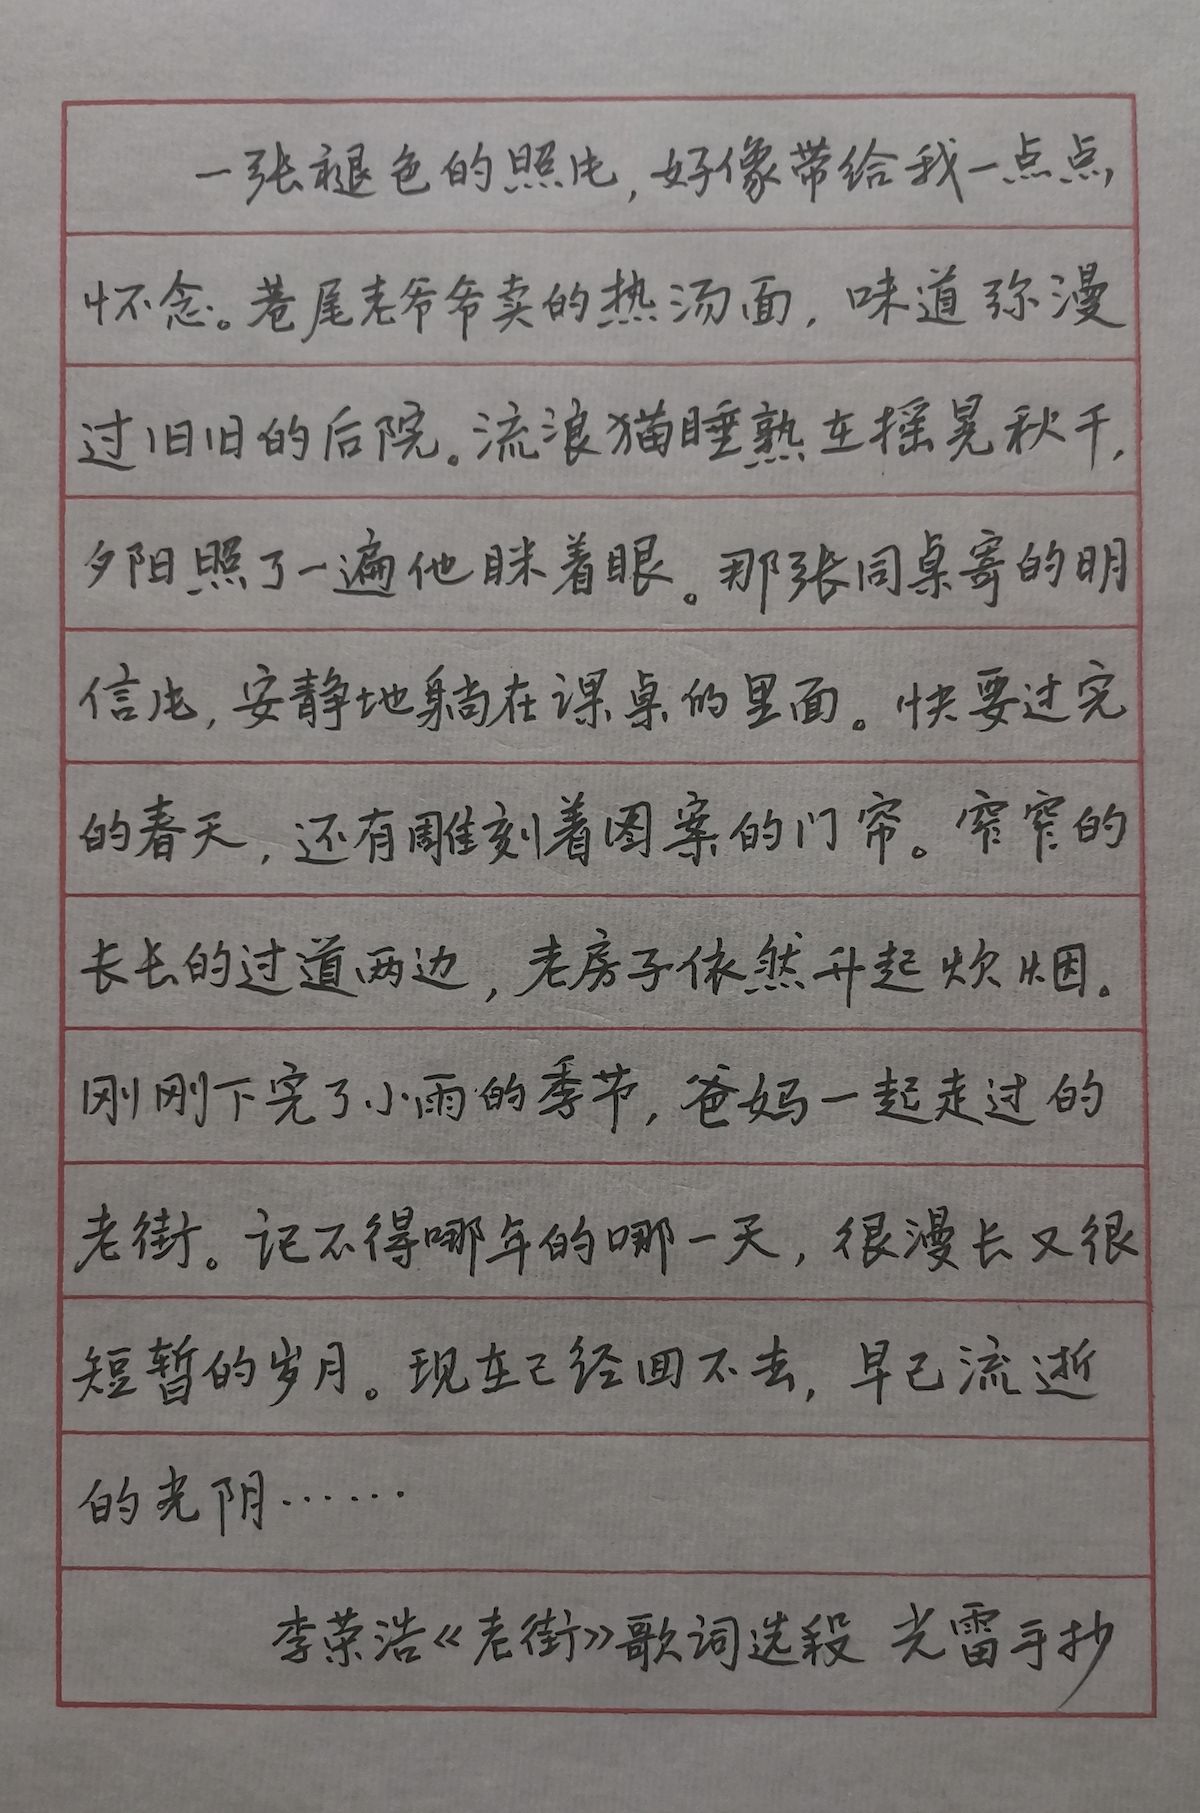 一张褪色的照片，好像带给我一点点，
怀念。巷尾老爷爷卖的热汤面，味道弥漫
过旧旧的后院。流浪猫睡熟在摇晃秋千，
夕阳照了一遍他眯着眼。那张同桌寄的明
信片，安静地躺在课桌的里面。快要过完
的春天，还有雕刻着图案的门帘。窄窄的
长长的过道两边，老房子依然升起炊烟。
刚刚下完了小雨的季节，爸妈一起走过的
老街。记不得哪年的哪一天，很漫长又很
短暂的岁月。现在已经回不去，早已流逝
的光阴……
李荣浩《老街》歌词选段 光雷手抄